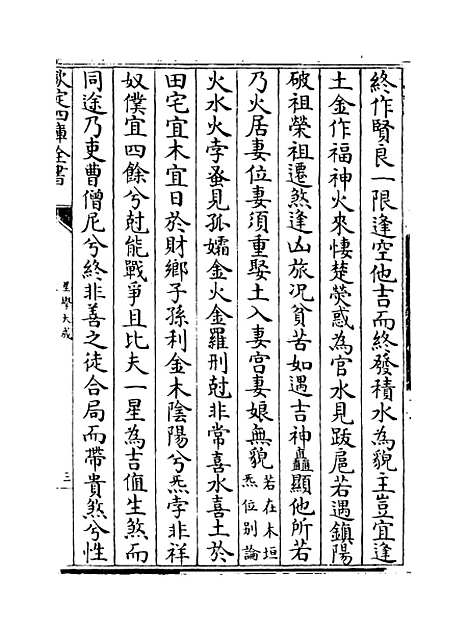 終作賢良一限逢空他吉而終發積水為貌主豈宜逢
土金作福神火來悽楚熒惑為官水見跋扈若遇鎮陽
破祖榮祖遷煞逢凶旅况貧苦如遇吉神矗顯他所若
乃火居妻位妻須重娶土入妻宮妻娘無貌若在木垣炁位别論
火水火孛蚤見孤孀金火金羅刑尅非常喜水喜土於
田宅宜木宜日於財鄉子孫利金木陰陽兮炁孛非祥
奴僕宜四餘兮尅能戰爭且比夫一星為吉值生煞而
同途乃吏曹僧尼兮終非善之徒合局而帶貴煞兮性
欽定四庫全書
星學大成